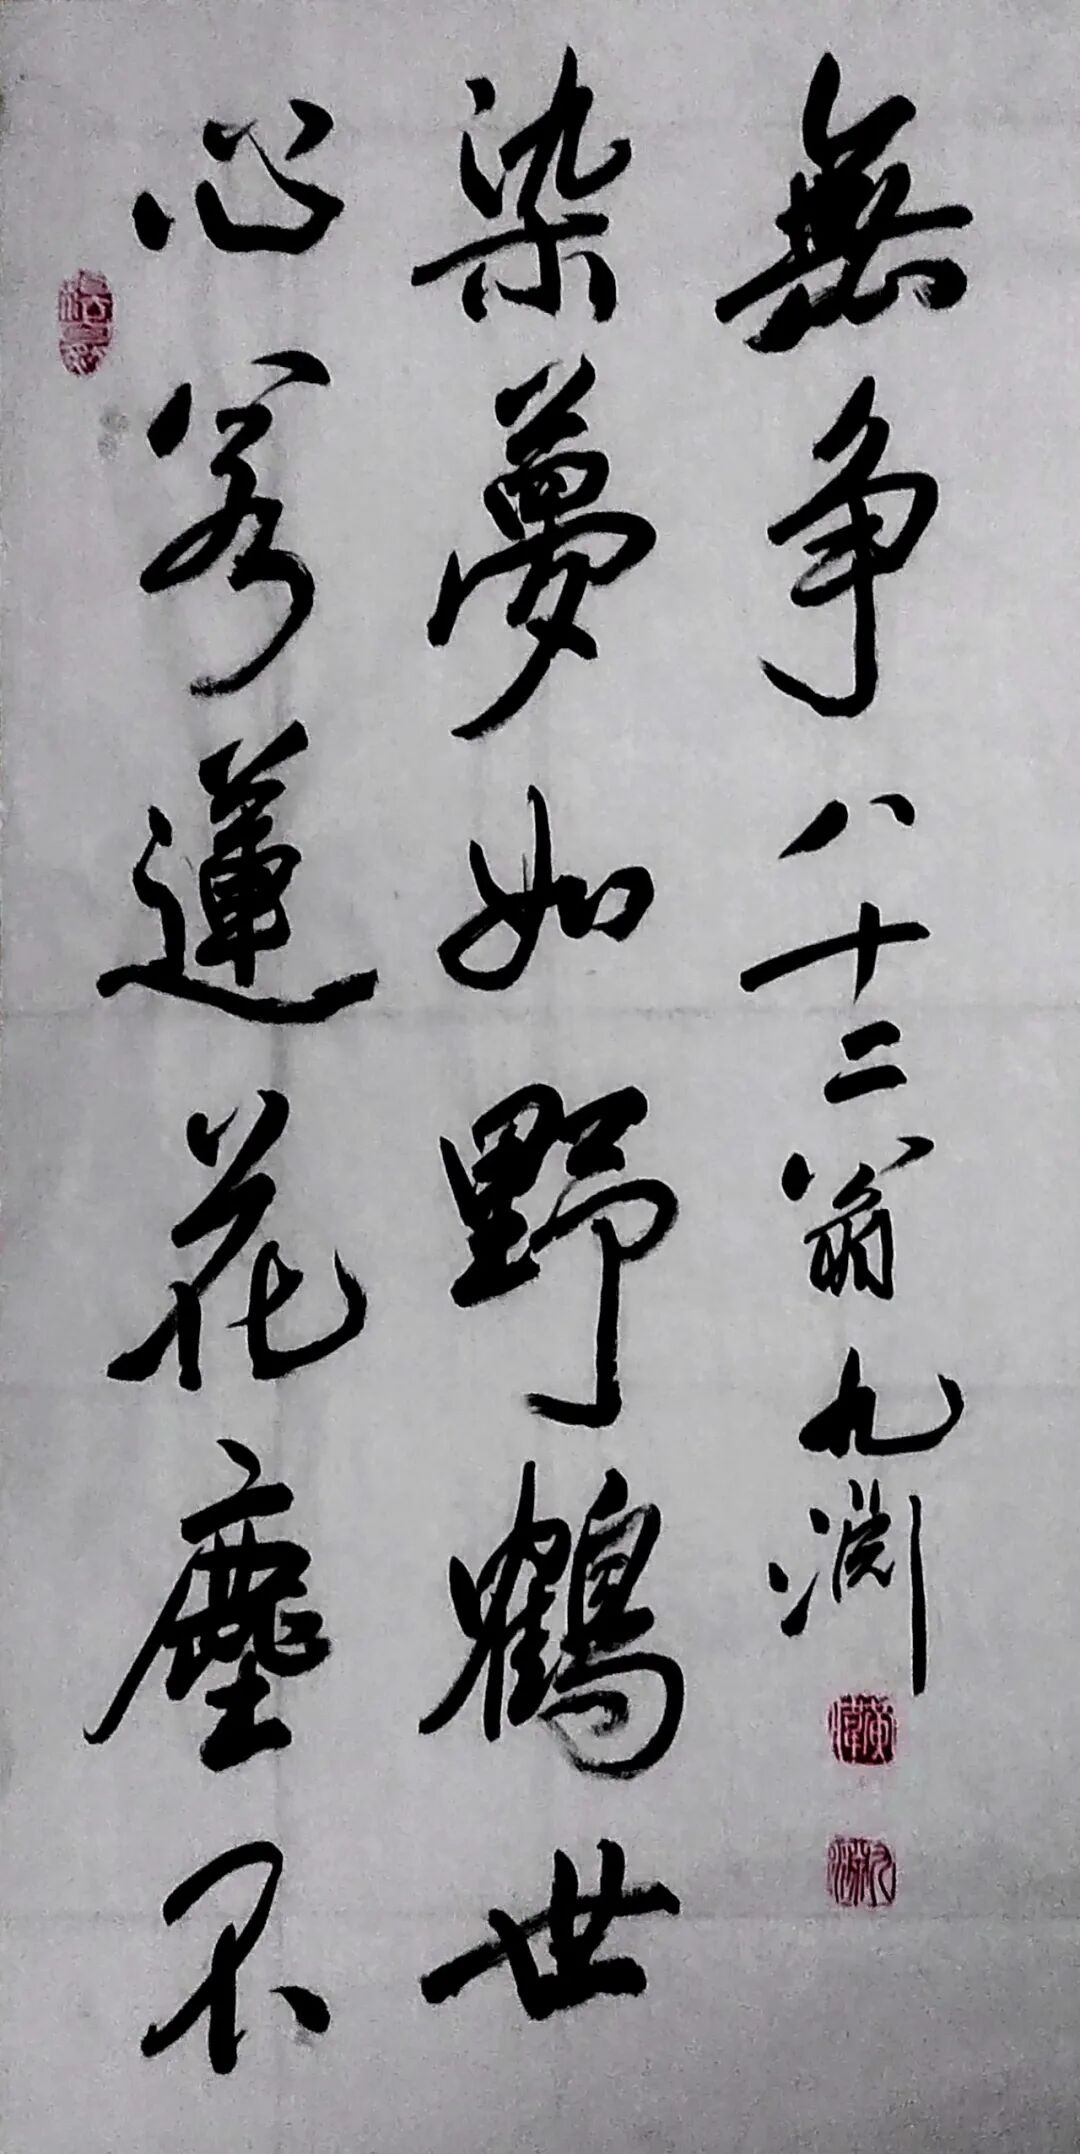 心若蓮花塵不
染夢如野鶴世
無争八十二翁九渊